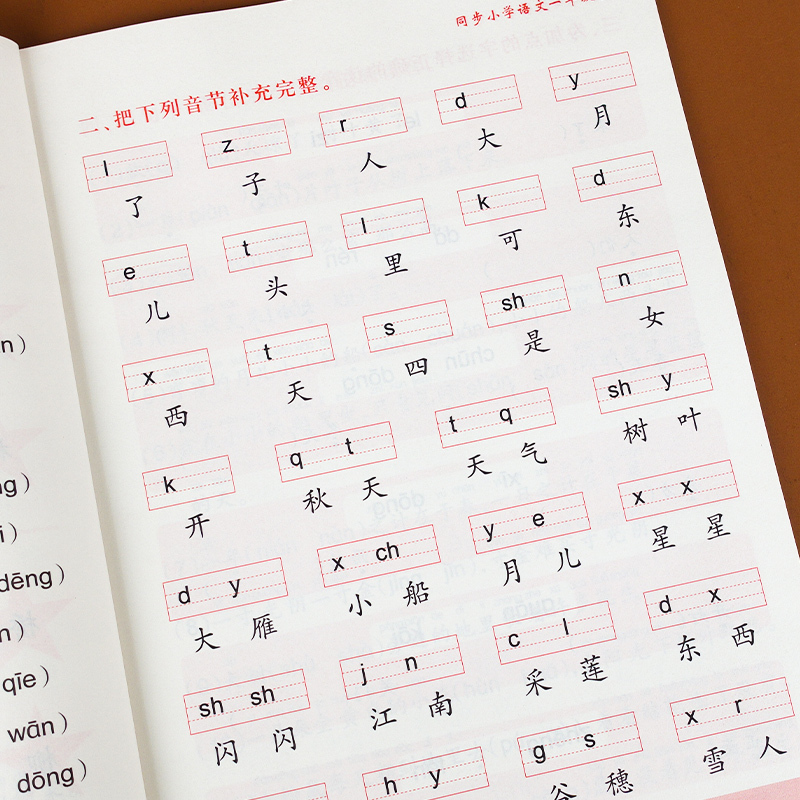 同步小学语文一年
二、把下列音节补充完整。
l z r d y
了 子 人 大 月
e t l k d
儿 头 里 可 东
x t s sh n
西 天 四 是 女
k q t t q sh y
开 秋 天 天 气 树 叶
d y x ch y e x x
大 雁 小 船 月 儿 星 星
sh sh j n c l d x
闪 闪 江 南 采 莲 东 西
h y g s x r
谷 穗 雪 人
n）
ng）
i）
dēng）
n）
qīe）
wān）
dōng）